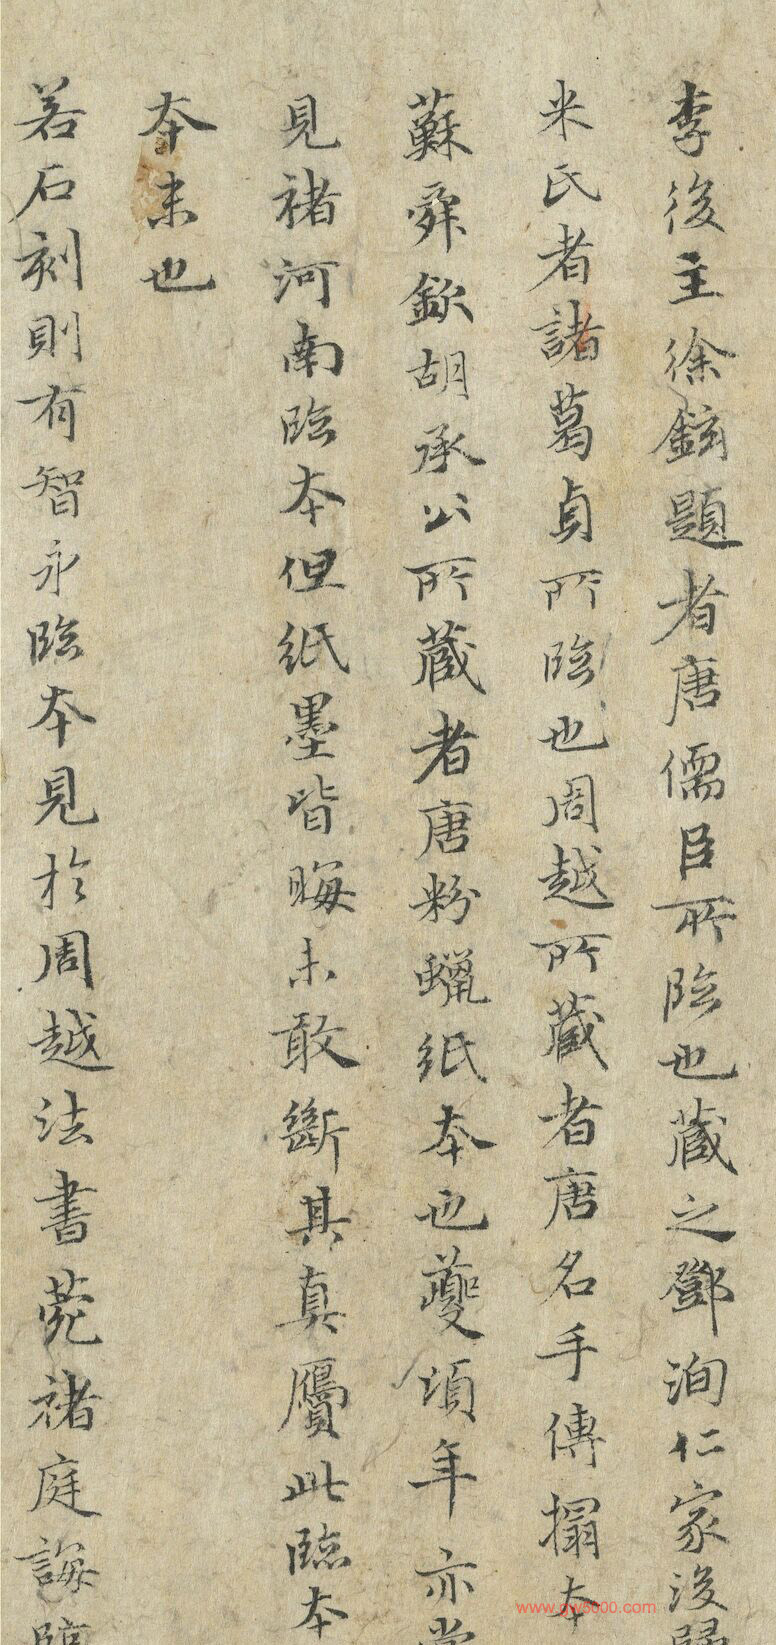 李後主徐鉉題者唐儒臣所臨也蔵之鄧洵仁家後歸
米氏者諸葛貞所臨也周越所蔵者唐名手傳搨本
蘇舜欽胡承公所蔵者唐粉蠟紙本也夔頃年亦嘗
見褚河南臨本但紙墨皆晦未敢斷其真贋此臨本
本末也
若石刻則有智永臨本見於周越法書苑褚庭誨臨
www.gw5000.com